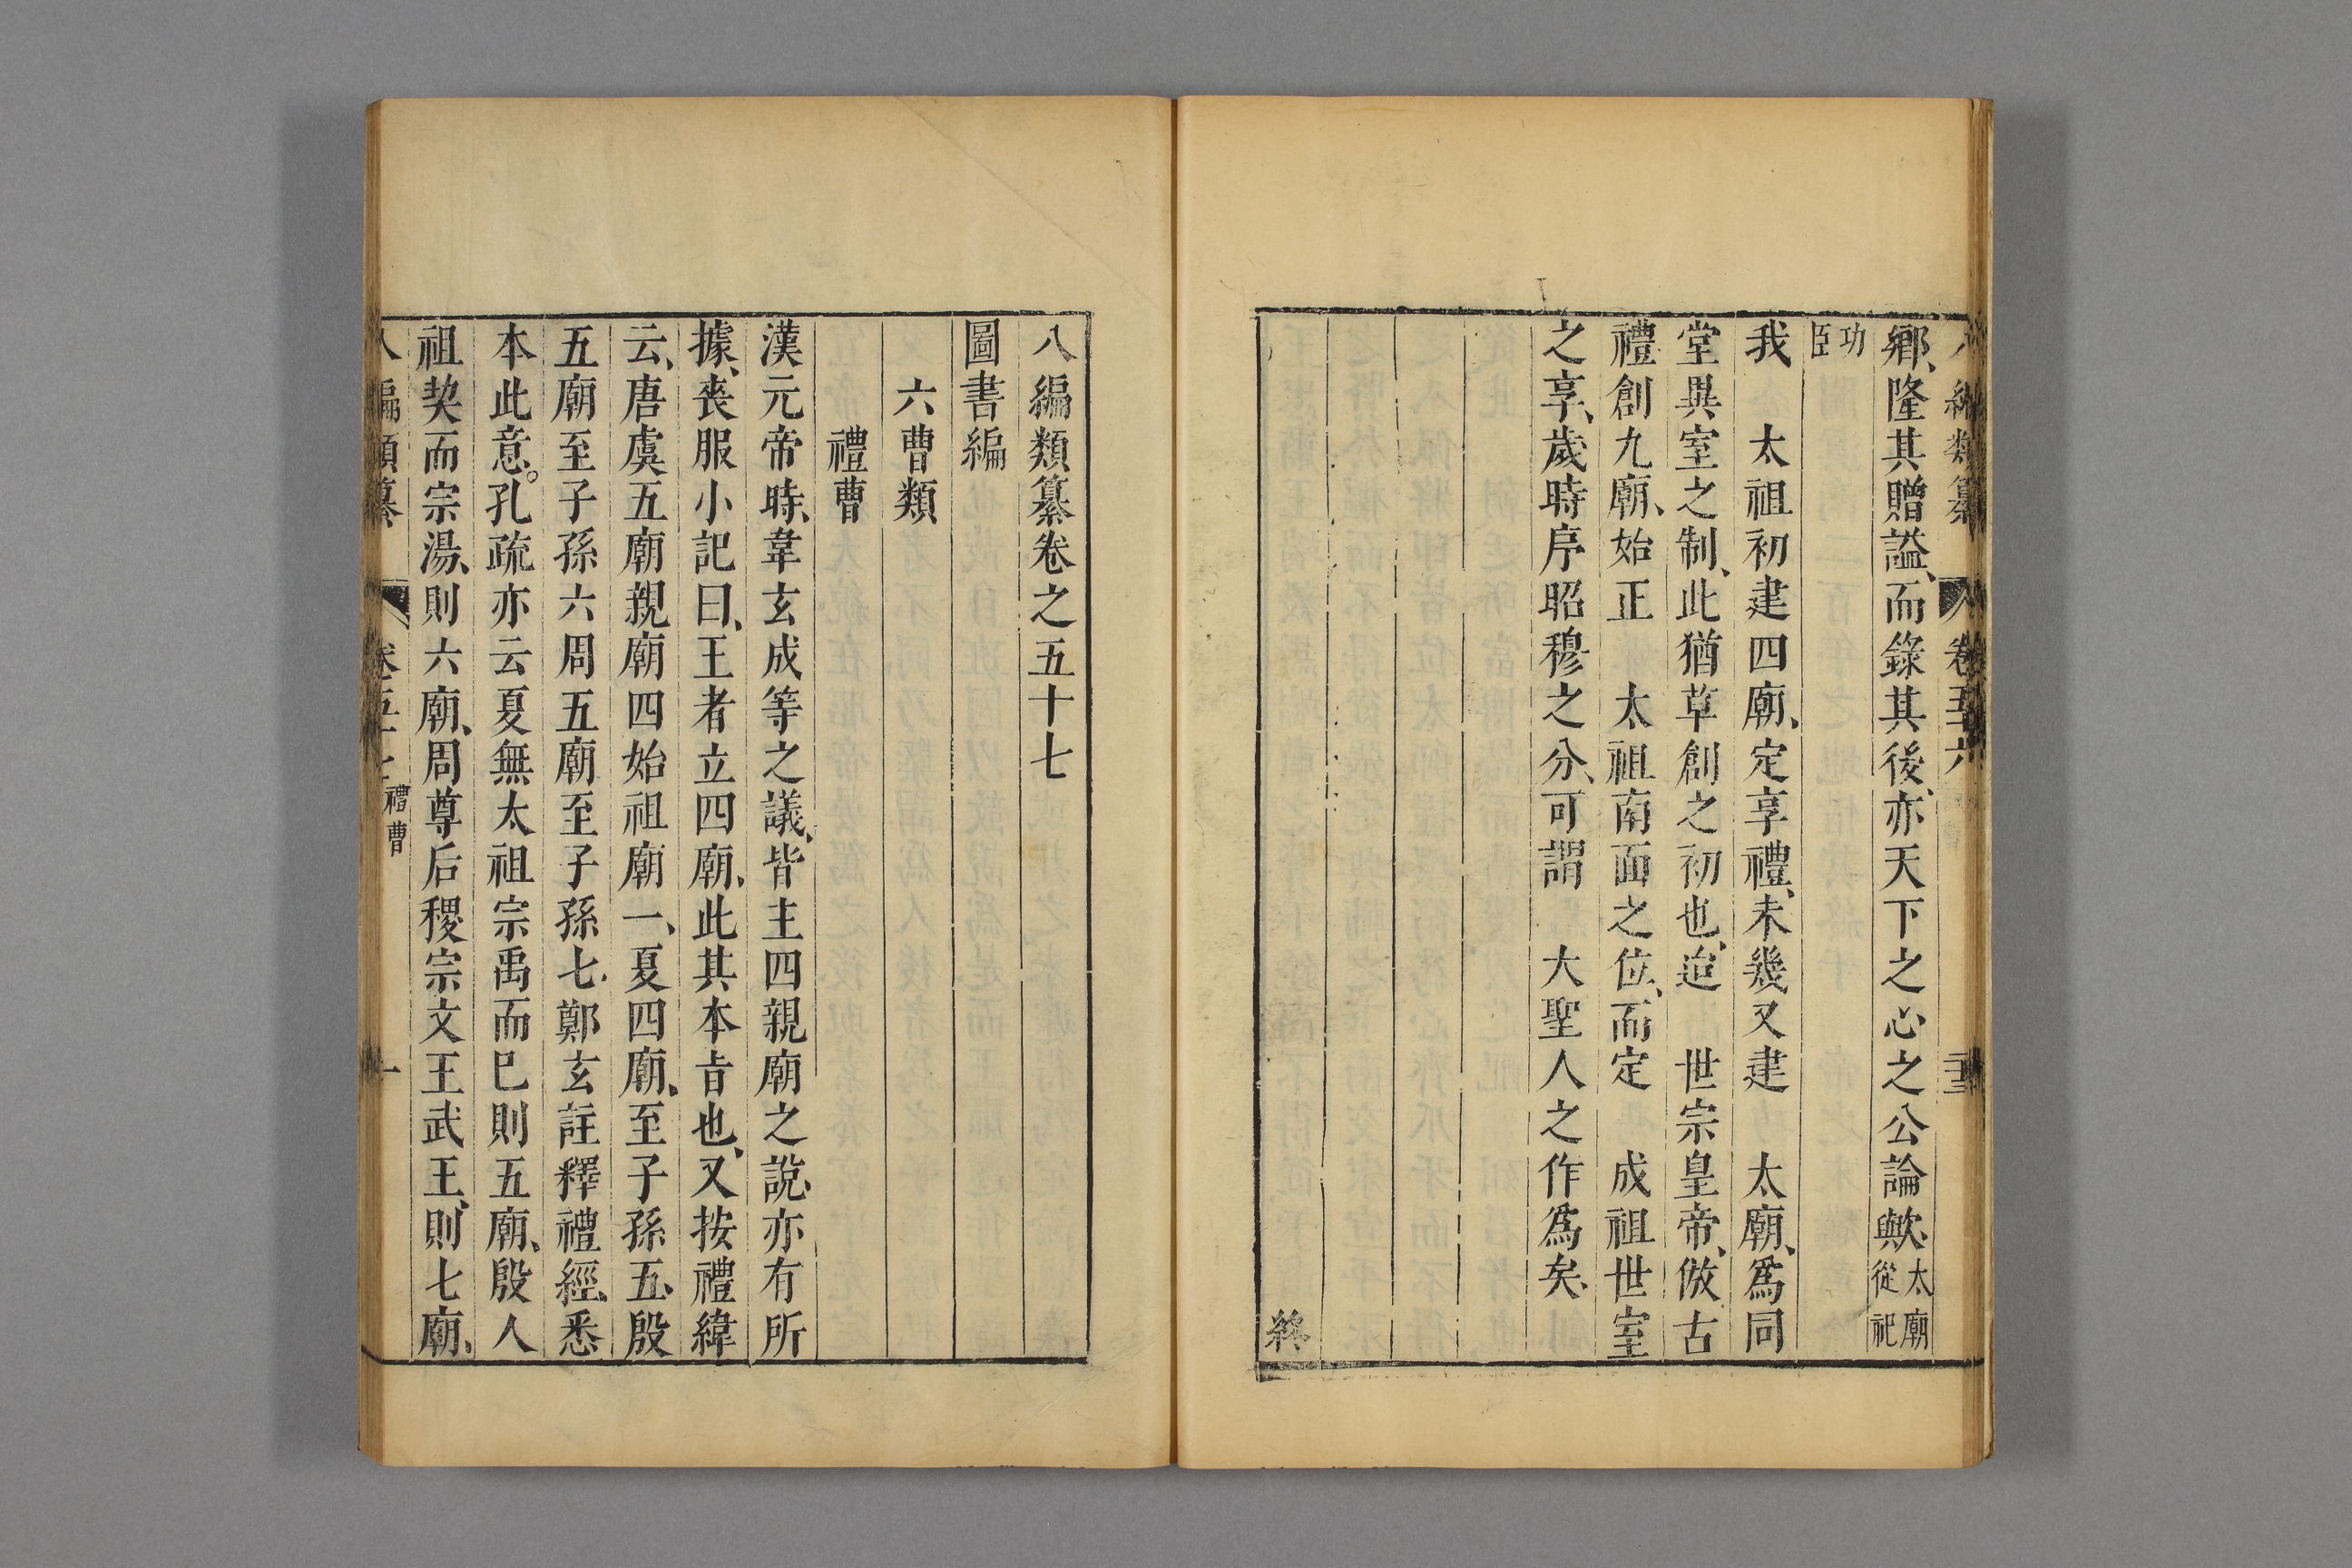 八編類纂 卷五十六 二十三
鄉、隆其贈謚、而錄其後、亦天下之心之公論歟、太廟從祀
功臣
我 太祖初建四廟、定享禮、未幾又建 太廟、爲同
堂異室之制、此猶草創之初也、迨 世宗皇帝、倣古
禮創九廟、始正 太祖南面之位、而定 成祖世室
之享、歲時序昭穆之分、可謂 大聖人之作爲矣、
終
八編類纂卷之五十七
圖書編
六曹類
禮曹
漢元帝時、韋玄成等之議、皆主四親廟之說、亦有所
據、喪服小記曰、王者立四廟、此其本旨也、又按禮緯
云、唐虞五廟親廟四始祖廟一、夏四廟、至子孫五、殷
五廟至子孫六周五廟至子孫七、鄭玄註釋禮經、悉
本此意。孔疏亦云夏無太祖宗禹而已則五廟、殷人
祖契而宗湯、則六廟、周尊后稷宗文王武王、則七廟、
八編類纂 卷五十七 禮曹 一